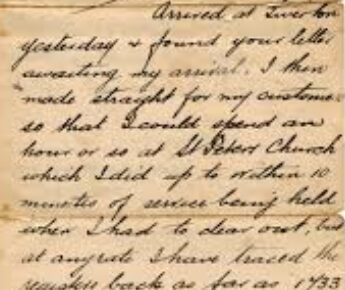 Arrived at Tiverton
yesterday & found your letter
awaiting my arrival. I then
made straight for my customer
so that I could spend an
hour or so at St Peters Church
which I did up to within 10
minutes of service being held
when I had to clear out, but
at anyrate I have traced the
registers back as far as 1733